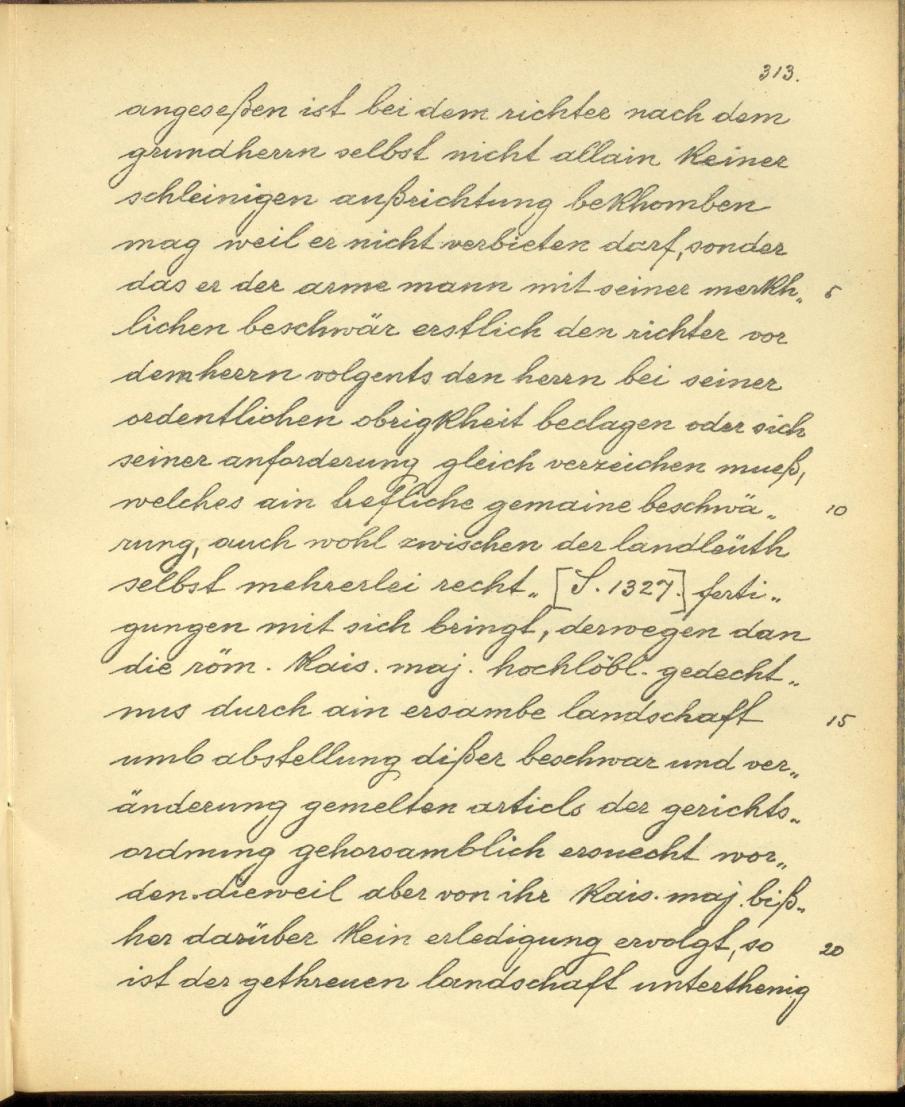 313.
angeseßen ist bei dem richter nach dem
grundherrn selbst nicht allain keiner
schleinigen außrichtung bekhomben
mag weil er nicht verbieten darf, sonder
das er der arme mann mit seiner merkh„ 5
lichen beschwär erstlich den richter vor
dem herrn volgents den herrn bei seiner
ordentlichen obrigkheit beclagen oder sich
seiner anforderung gleich verzeichen mueß,
welches ain trefliche gemaine beschwä„ 10
rung, auch wohl zwischen der landleüth
selbst mehrerlei recht„ [S. 1327.] ferti„
gungen mit sich bringt, derwegen dan
die röm. kais. maj. hochlöbl. gedecht„
nus durch ain ersambe landschaft 15
umb abstellung dißer beschwar und ver„
änderung gemelten articls der gerichts„
ordnung gehorsamblich ersuecht wor„
den. dieweil aber von ihr kais. maj. biß„
her darüber kein erledigung ervolgt, so 20
ist der gethreuen landschaft unterthenig